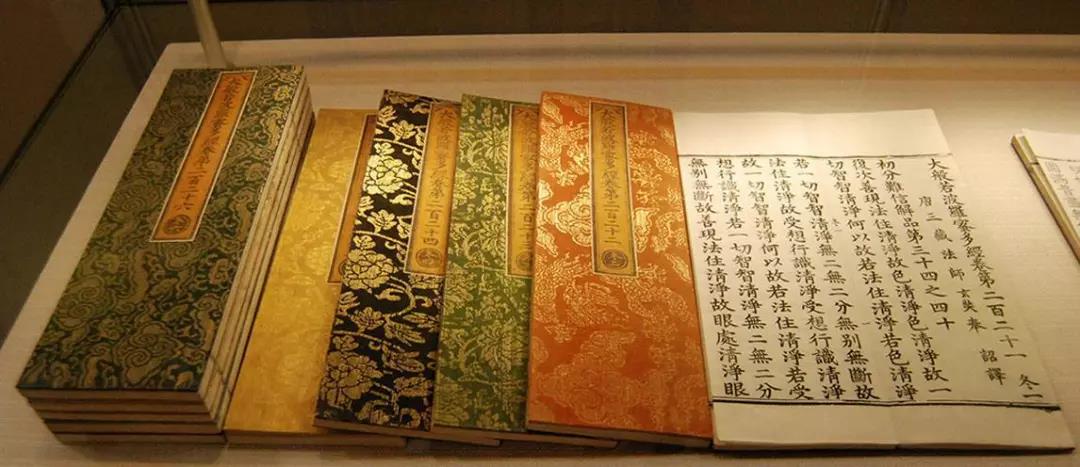 大般若波羅蜜多經卷第二百二十六
大般若波羅蜜多經卷第二百二十四
大般若波羅蜜多經卷第二百二十三
大般若波羅蜜多經卷第二百二十二
大般若波羅蜜多經卷第二百二十一 冬一
唐三藏法師玄奘奉 詔譯
初分難信解品第三十四之四十
復次善現法住清淨故色清淨色清淨故一
切智智清淨何以故若法住清淨若色清淨
若一切智智清淨無二無二分無別無斷故
法住清淨故受想行識清淨受想行識清淨
故一切智智清淨何以故若法住清淨若受
想行識清淨若一切智智清淨無二無二分
無別無斷故善現法住清淨故眼處清淨眼